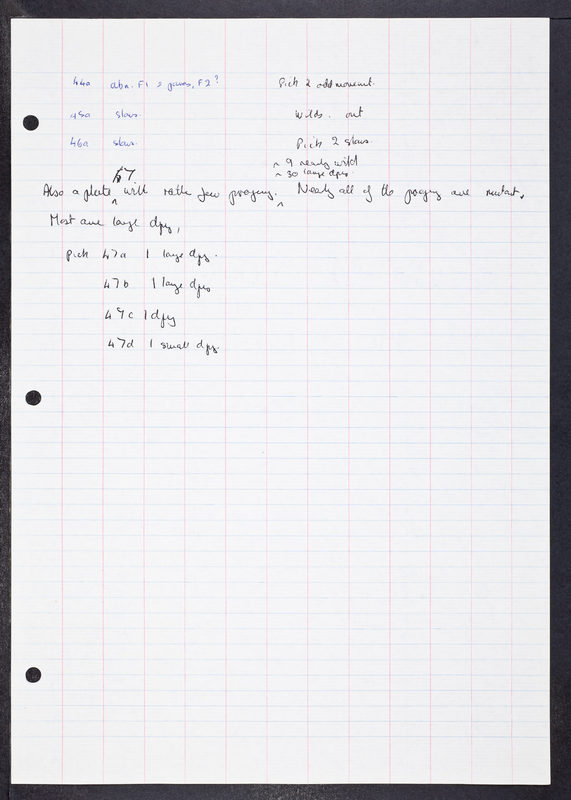 44a abn. F1 2 gaves, F2? Pick 2 odd movement.
45a slows. Wilds. out
46a slow. Pick 2 slows
47 ~ 9 nearly wild
~ 30 large dpys.
Also a plate ^ with rather few progeny. ^ Nearly all of the progeny are mutant.
Most are large dpy,
Pick 47a 1 large dpy.
47b 1 large dpy
47c 1 dpy
47d 1 small dpy.